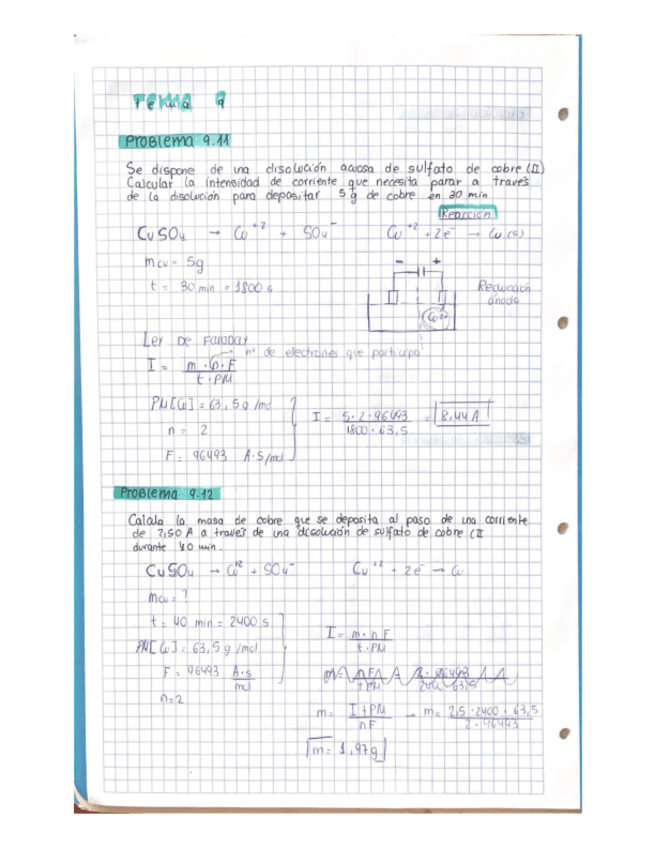 Tema 9
Problema 9.11
Se dispone de una disolución acuosa de sulfato de cobre (II)
Calcular la intensidad de corriente que necesita parar a través
de la disolución para depositar 5 g de cobre en 30 min
Reacción
CuSO4 → Cu+2 + SO4-
Cu+2 + 2e- → Cu (s)
mcu = 5g
t = 30 min = 1800 s
- +
Reducción
ánodo
Ley de Faraday
nº de electrones que participa
I = m · n · F / t · PM
PM[Cu] = 63,5 g/mol
n = 2
F = 96493 A·S/mol
I = 5 · 2 · 96493 / 1800 · 63,5 = 8,44 A
Problema 9.12
Calcula la masa de cobre que se deposita al paso de una corriente
de 2,50 A a través de una disolución de sulfato de cobre (II
durante 40 min.
CuSO4 → Cu+2 + SO4-
Cu+2 + 2e- → Cu
mcu = ?
t = 40 min = 2400 s
PM[Cu] = 63,5 g/mol
F = 96493 A·s / mol
n=2
I = m · n F / t · PM
m = I t PM / n F → m = 2,5 · 2400 · 63,5 / 2 · 96493
m = 1,97g